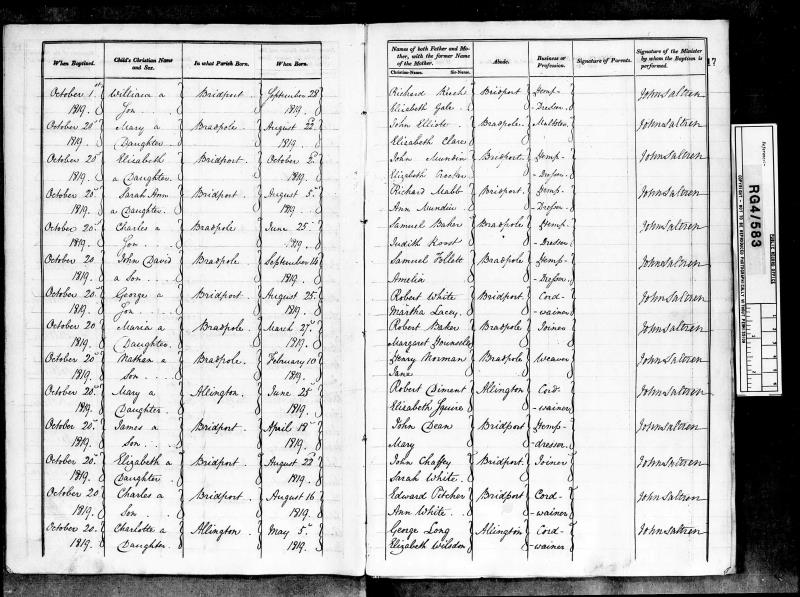 When Baptised. Child's Christian Name and Sex. In what Parish Born. When Born.
October 1st William a Bridport September 28
1819. Son 1819.
October 20th Mary a Bradpole August 22d
1819. Daughter 1819.
October 20th Elizabeth Bridport October 2d
1819. a Daughter 1819.
October 20th Sarah Ann Bridport August 5th
1819. a Daughter. 1819.
October 20th Charles a Bradpole June 25th
1819. Son 1819.
October 20 John David Bradpole September 14
1819. a Son 1819.
October 20th George a Bridport August 25th
1819. Son 1819.
October 20 Maria a Bradpole March 27th
1819. Daughter 1819.
October 20th Nathan a Bradpole. February 10th
1819. Son 1819.
October 20th Mary a Allington June 28th
1819. Daughter 1819.
October 20th James a Bridport April 18th
1819. Son 1819.
October 20th Elizabeth a Bridport August 22d
1819. Daughter 1819.
October 20 Charles a Bridport August 16
1819. Son 1819.
October 20 Charlotte a Allington May 5th
1819. Daughter 1819.
Names of both Father and Mother, with the former Name of the Mother. Abode. Business or Profession. Signature of Parents. Signature of the Minister by whom the Baptism is performed.
Christian-Name. Sir-Name.
17
Richard Bridport Hemp- John Saltren
Elizabeth Gale Dresser
John Elliott Bradpole Maltster John Saltren
Elizabeth Clare
John Mundin Bridport Hemp- John Saltren
Elizabeth Dresser
Richard Mabt Bridport Hemp- John Saltren
Ann Mundin Dresser
Samuel Baker Bradpole Hemp- John Saltren
Judith Dresser
Samuel Follett Bradpole Hemp- John Saltren
Amelia -Dresser
Robert White Bridport Cord- John Saltren
Martha Lacey -wainer
Robert Baker Bradpole Joiner John Saltren
Margaret Hounsell
Henry Norman Bradpole Weaver John Saltren
Jane
Robert Diment Allington Cord- John Saltren
Elizabeth Squire -wainer
John Dean Bridport Hemp- John Saltren
Mary -dresser
John Chaffey Bridport Joiner John Saltren
Sarah White
Edward Pitcher Bridport Cord- John Saltren
Ann White -wainer
George Long Allington Cord- John Saltren
Elizabeth Wilsdon -wainer
Reference:-
RG4/583
PUBLIC RECORD OFFICE
COPYRIGHT - NOT TO BE REPRODUCED PHOTOGRAPHICALLY WITHOUT PERMISSION